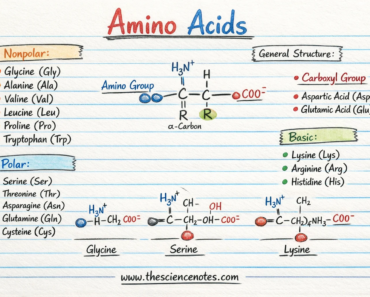 Amino Acids
Nonpolar:
Glycine (Gly)
Alanine (Ala)
Valine (Val)
Leucine (Leu)
Proline (Pro)
Tryptophan (Trp)
Polar:
Serine (Ser)
Threonine (Thr)
Asparagine (Asn)
Glutamine (Gln)
Cysteine (Cys)
Amino Group
H₃N⁺
H
C
C
COO⁻
R
R
α-Carbon
General Structure:
Carboxyl Group
Aspartic Acid (Asp
Glutamic Acid (Glu
Basic:
Lysine (Lys)
Arginine (Arg)
Histidine (His)
H₃N⁺
H-CH₂ COO⁻
Glycine
H₃N⁺ CH- OH
C CH₂-OH-COO⁻
Serine
H₃N⁺ CH₂
C-CH₂)₄NH₃-COO⁻
Lysine
www.thesciencenotes.com